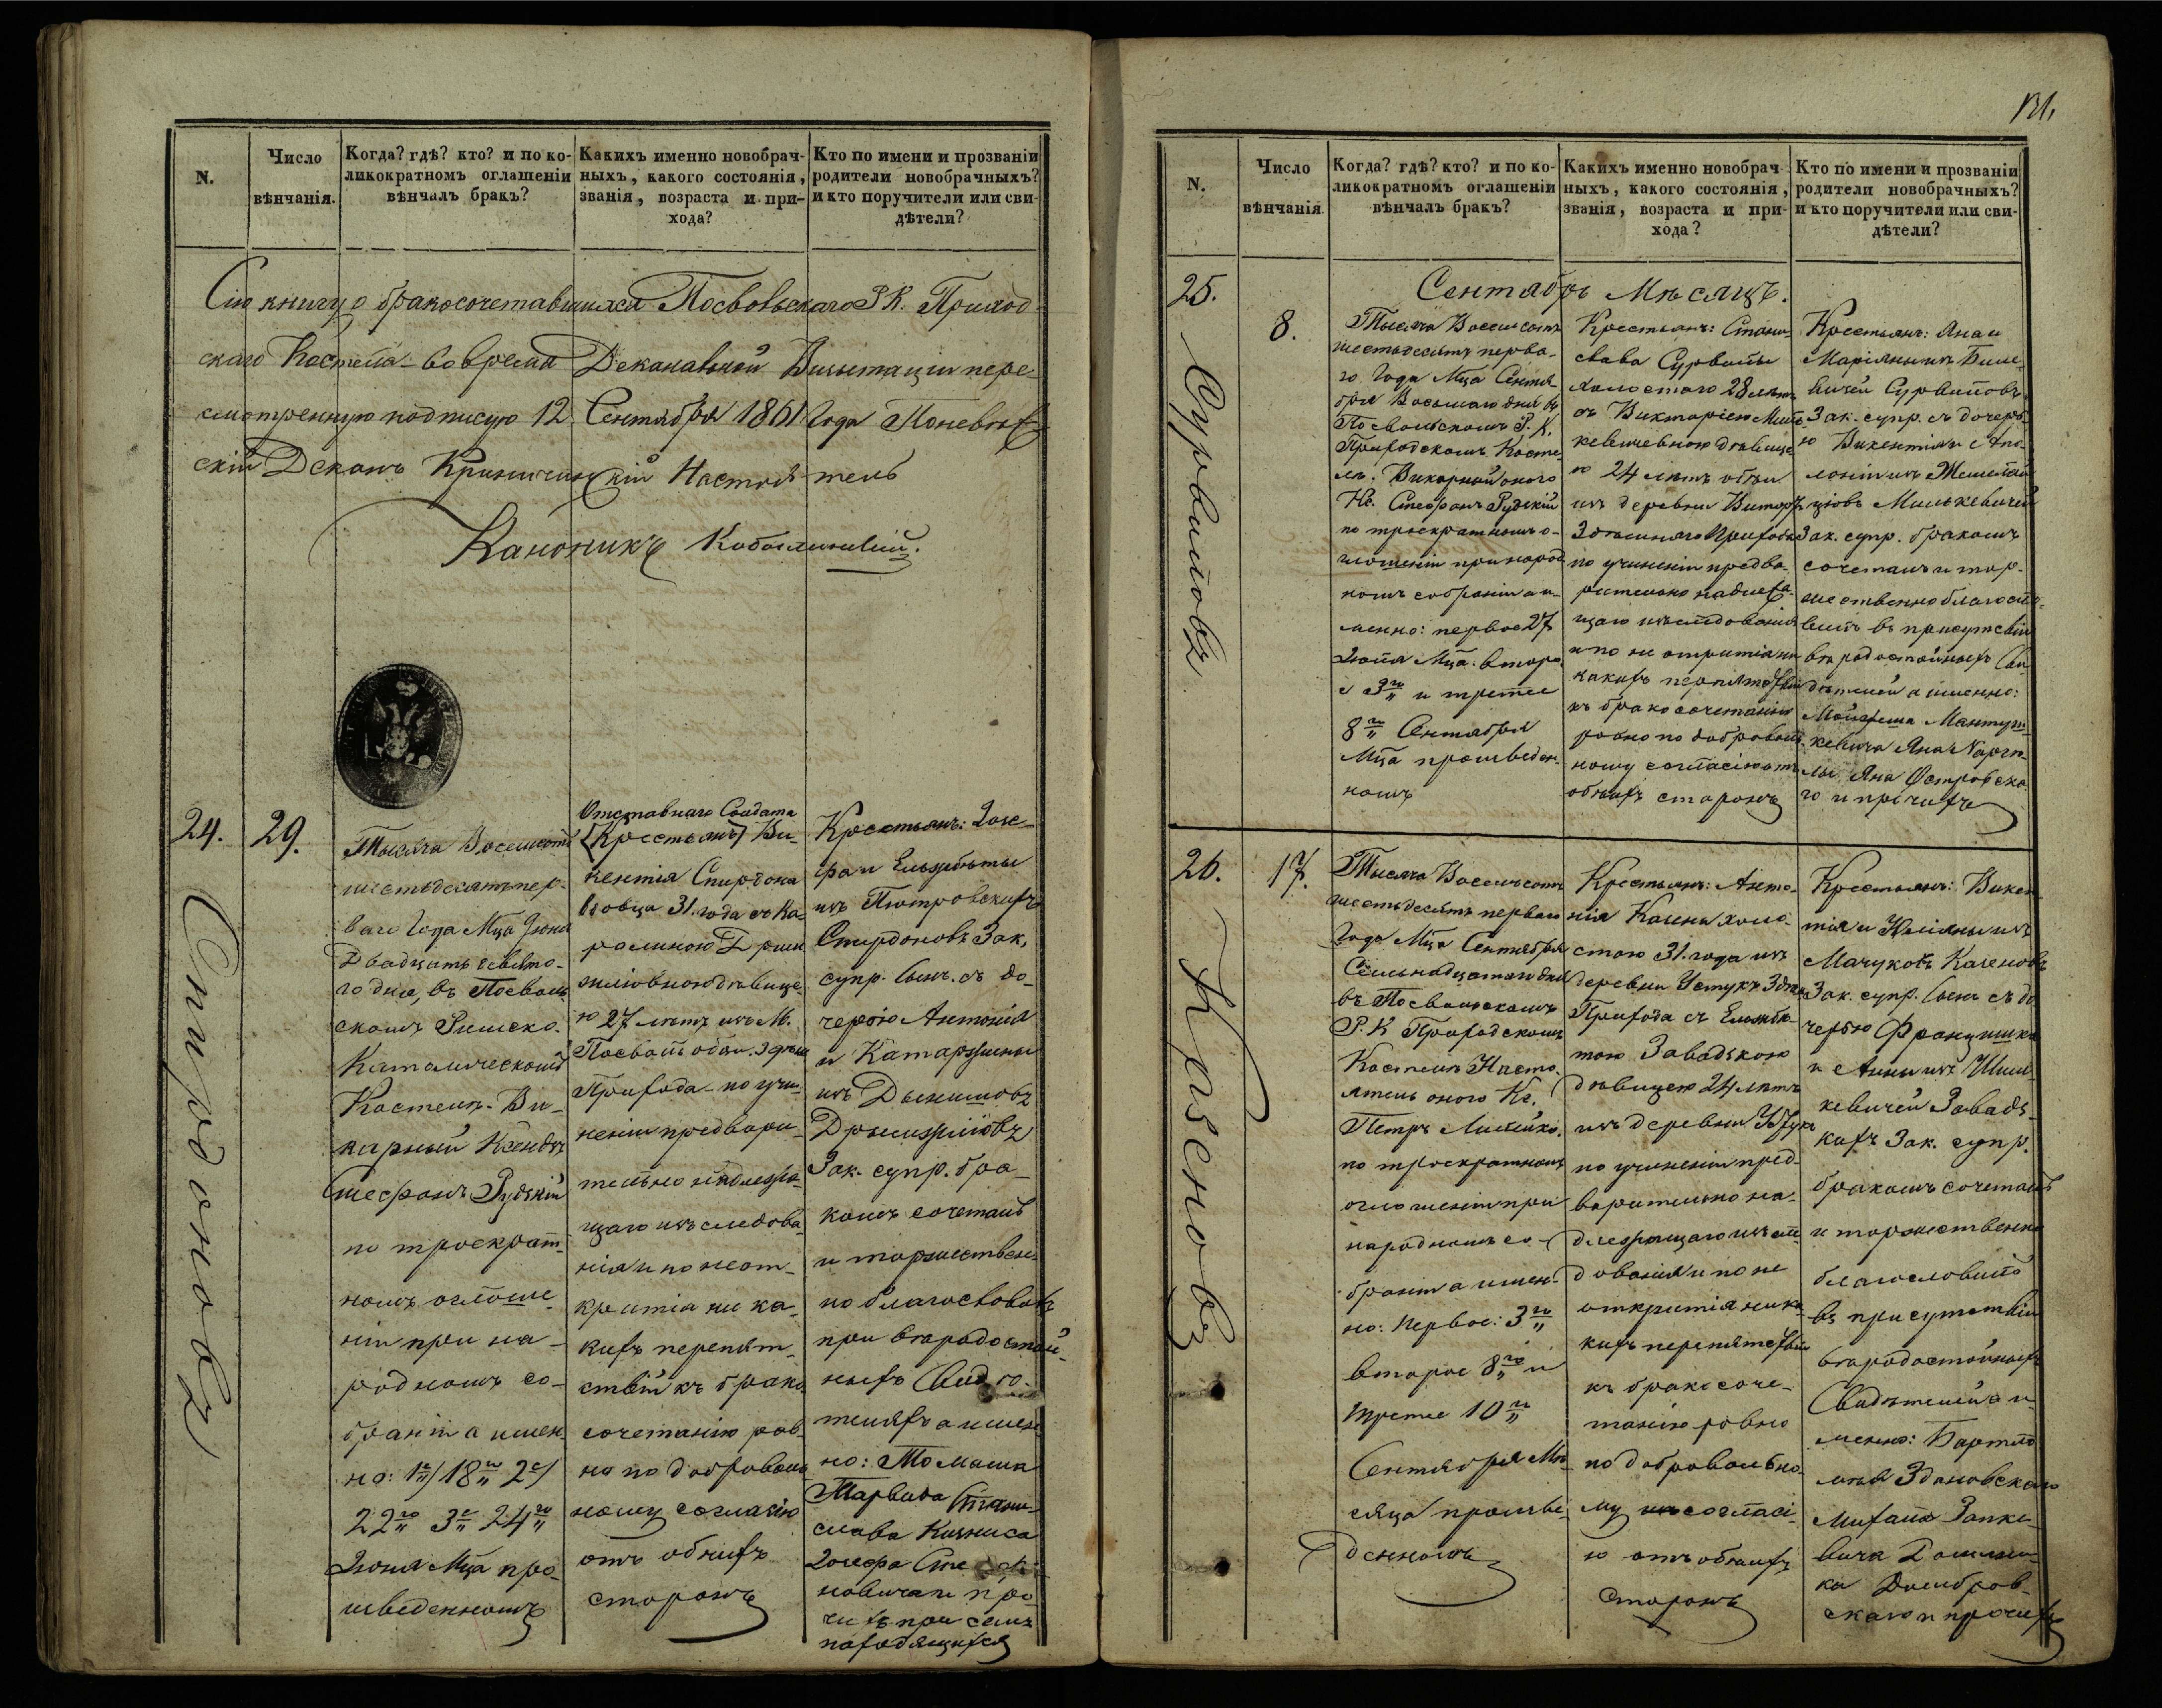 N.
Число
вѣнчанія.
Когда? гдѣ? кто? и по ко-
ликократномъ оглашеніи
вѣнчалъ бракъ?
Какихъ именно новобрач-
ныхъ, какого состоянія,
званія, возраста и при-
хода?
Кто по имени и прозваніи
родители новобрачныхъ?
и кто поручители или сви-
дѣтели?
Сію книгу о бракосочетавшихся Посвольскаго Р. К. Приход
скаго Костела во время Деканальной Визытаціи пере-
смотренную подписую 12 Сентября 1861 Года Поневѣж
скій Деканъ Криничинскій Настоятель
Каноникъ
24.
Спирдоновъ
29.
Тысяча Восемсотъ
шестьдесятъ пер-
ваго Года Мца Іюня
Двадцать девято-
го дня, въ Посволь
скомъ Римско-
Католическомъ
Костелѣ Ви-
карный Ксендзъ
Стефанъ Рудзкій
по троекрат-
номъ оглоше-
ніи при на-
родномъ со-
браніи а имен-
но: 1е/ 18го 2е/
22го 3е 24го
Іюня Мца про-
изведенномъ
Отставнаго Солдата
[Крестьянъ] Ви-
кентія Спирдона
вдовца 31. года съ Ка-
ролиною
дѣвице-
ю 27 лѣтъ изъ М.
Посволь обои. здѣш
Прихода по учи-
неніи предвари-
тельно надлежа-
щаго изъследова-
нія и по неот-
критіи ни ка-
кихъ препят-
ствій къ брако
сочетанію рав-
но по доброволь
ному согласію
отъ обоихъ
сторонъ
Крестьянъ: Іозе-
фа и Ельжбѣты
изъ Піотровскихъ
Спирдоновъ Зак.
супр. сынъ. съ до-
черою Антонія
и Катаржины
изъ
Зак. супр. бра-
комъ сочеталъ
и торжествен-
но благословилъ
при вѣродостой-
ныхъ Свидѣ-
теляхъ а имен
но: Томаша
Тарвида Стани-
слава
Іозефа
новича и про
чихъ при семъ
находящихся
131.
N.
Число
вѣнчанія.
Когда? гдѣ? кто? и по ко-
ликократномъ оглашеніи
вѣнчалъ бракъ?
Какихъ именно новобрач-
ныхъ, какого состоянія,
званія, возраста и при-
хода?
Кто по имени и прозваніи
родители новобрачныхъ?
и кто поручители или сви-
дѣтели?
Сентябрь Мѣсяцъ.
25.
Сурвилловъ
8.
Тысяча Восемсотъ
шестьдесятъ перва-
го Года Мца Сентя-
бря Восьмаго дня въ
Посвольскомъ Р. К.
Приходскомъ Косте
лѣ. Викарный оного
Кс. Стефанъ Рудзкій
по троекратномъ о-
глошеніи при народ
номъ собраніи а и-
менно: первое 27
Мца. второ
е 3го и третее
8го Сентября
Мца произведен-
номъ
Крестьянъ: Стани-
слава Сурвиллы
холостаго 28 лѣтъ
съ Викторіею Миль
кевичевною дѣвице
ю 24 лѣтъ обои
изъ деревни
Здѣшняго Прихода
по учиненіи предва-
рительно надлежа-
щаго изъслѣдованія
и по не открытіи ни
какихъ препятствій
къ бракосочетанію
ровно по доброволь-
ному согласію отъ
обоихъ сторонъ
Крестьянъ: Яна и
Маріянны изъ
Сурвилловъ
Зак. супр. съ дочерь-
ю Викентія и Апо-
лоніи изъ
Милькевичей
Зак. супр. бракомъ
сочеталъ и тор-
жественно благосло-
вилъ въ присутствіи
вѣродостойныхъ Сви
дѣтелей а именно:
кевича Яна
Яна Островска-
го и прочихъ
26.
Касеновъ
17.
Тысяча Восемсотъ
шестьдесятъ перваго
Года Мца Сентября
Семьнадцатаго дня
въ Посвольскомъ
Р. К Приходскомъ
Костелѣ Насто-
ятель оного Кс.
Петръ
по троекратномъ
оглошеніи при
народномъ со-
браніи а имен-
но: Первое: 3го
второе 8го и
третее 10го
Сентября Мѣ-
сяца произве-
денномъ
Крестьянъ: Анто-
нія Касена холо-
стаго 31. года изъ
деревни Устукъ Здѣш
Прихода съ Ельжбѣ-
тою Завадзкою
дѣвицею 24 лѣтъ
изъ деревни
по учиненіи пред-
варительно на-
длежащаго изъслѣ-
дованія и по не
открытія ника-
кихъ препятствій
къ бракосоче-
танію ровно
по добровольно-
му согласі-
ю отъ обоихъ
Сторонъ
Крестьянъ: Викен
тія и Юліянны изъ
Мачуковъ Касеновъ
Зак. супр. сына съ до
черью Францишка
и Анны изъ
кевичей Завадз-
кихъ Зак. супр.
бракомъ сочеталъ
и торжественно
благословилъ
въ присутствіи
вѣродостойныхъ
Свидѣтелей а и-
менно: Бартло
мѣя Здановскаго
Михаила
вича Домини-
ка Домбров-
скаго и прочихъ